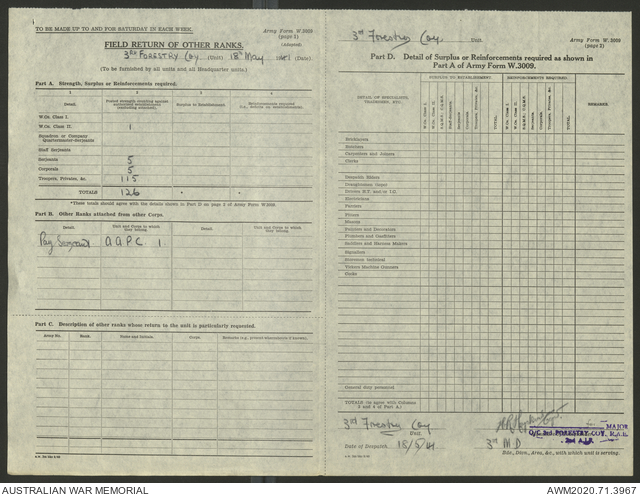 TO BE MADE UP TO AND FOR SATURDAY IN EACH WEEK.
Army Form W.3009
(page 1)
(Adapted)
FIELD RETURN OF OTHER RANKS.
3rd FORESTRY Coy (Unit) 18th May 1941 (Date)
(To be furnished by all units and all Headquarter units.)
Part A. Strength, Surplus or Reinforcements required.
1 2 3 4
Detail.
Surplus to Establishment.
W.Os. Class I.
W.Os. Class II. 1
Squadron or Company
Quartermaster-Serjeants
Staff Serjeants
Serjeants 5
Corporals 5
Troopers, Privates, &c. 115
TOTALS 126 * *
*These totals should agree with the details shown in Part D on page 2 of Army Form W.3009.
Part B. Other Ranks attached from other Corps.
Detail. Unit and Corps to which they belong Detail. Unit and Corps to which they belong
Pay Sergeant A A P C 1
Part C. Description of other ranks whose return to the unit is particularly requested.
Army No. Rank. Name and Initials. Corps. Remarks
3rd Forestry Coy. Unit.
Army Form W.3009
(page 2)
Part D. Detail of Surplus or Reinforcements required as shown in
Part A of Army Form W.3009.
SURPLUS TO ESTABLISHMENT. REINFORCEMENTS REQUIRED.
DETAIL OF SPECIALISTS, TRADESMEN, ETC.
W.Os. Class I.
W.Os. Class II.
Staff-Serjeants
Serjeants
Corporals
Troopers, Privates, &c.
TOTAL.
W.Os. Class I.
W.Os. Class II.
Serjeants
Corporals
Troopers, Privates, &c.
TOTAL.
REMARKS.
Bricklayers
Carpenters and Joiners
Clerks
Draughtsmen
Electricians
Farriers
Fitters
Masons
Painters and Decorators
Plumbers and Gasfitters
Saddlers and Harness Makers
Signallers
Vickers Machine Gunners
Cooks
General duty personnel
TOTALS (to agree with Columns
3 and 4 of Part A.)
3rd Forestry Coy
Unit
MAJOR
O/C 3rd FORESTRY COY. R.A.E.
2nd A.I.F.
Date of Despatch 18/5/41
3rd M D
Bde., Divn., Area, &c., with which unit is serving.
AUSTRALIAN WAR MEMORIAL
AWM2020.71.3967